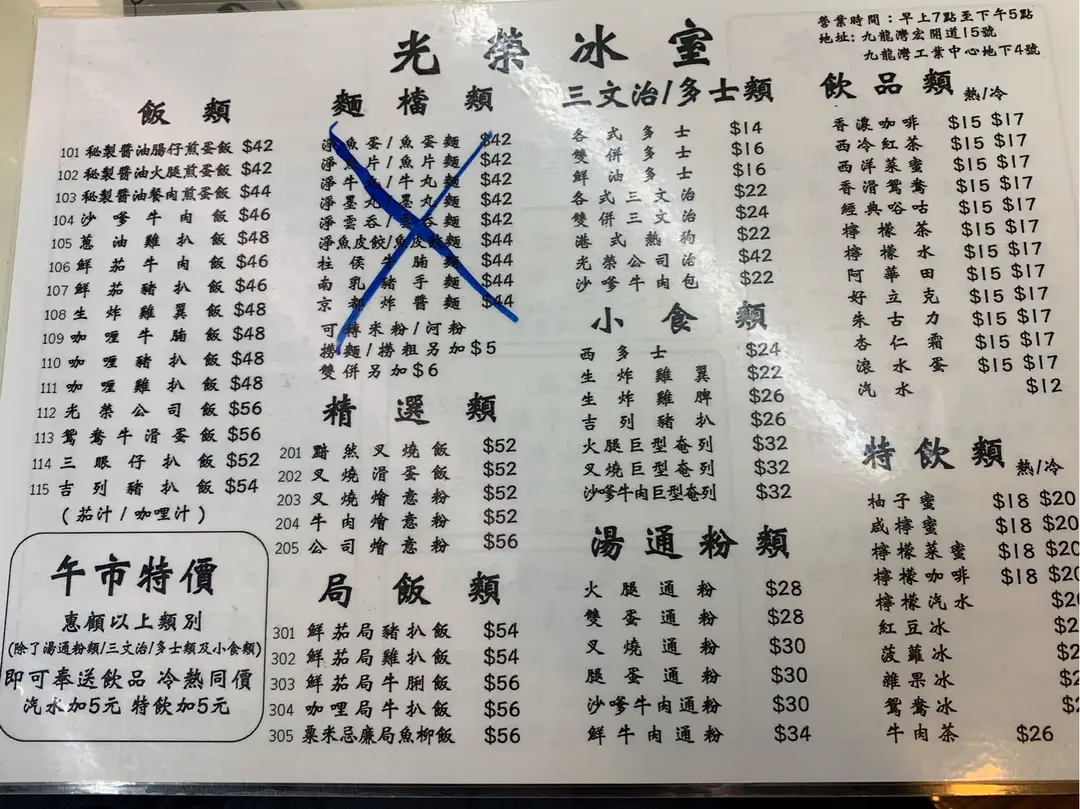 光榮冰室
營業時間：早上7點至下午5點
地址: 九龍灣宏開道15號
九龍灣工業中心地下4號
飯類
101 秘製醬油腸仔煎蛋飯 $42
102 秘製醬油火腿煎蛋飯 $42
103 秘製醬油餐肉煎蛋飯 $44
104 沙嗲牛肉飯 $46
105 蔥油雞扒飯 $48
106 鮮茄牛肉飯 $46
107 鮮茄豬扒飯 $46
108 生炸雞翼飯 $48
109 咖喱牛腩飯 $48
110 咖喱豬扒飯 $48
111 咖喱雞扒飯 $48
112 光榮公司飯 $56
113 鴛鴦牛滑蛋飯 $56
114 三眼仔扒飯 $52
115 吉列豬扒飯 $54
(茄汁/咖哩汁)
午市特價
惠顧以上類別
(除了湯通粉類/三文治/多士類及小食類)
即可奉送飲品 冷熱同價
汽水加5元 特飲加5元
麵檔類
淨魚蛋/魚蛋麵 $42
淨魚片/魚片麵 $42
淨牛丸/牛丸麵 $42
淨墨丸/墨丸麵 $42
淨雲吞/雲吞麵 $42
淨魚皮餃/魚皮餃麵 $44
柱侯牛腩麵 $44
南乳豬手麵 $44
京都炸醬麵 $44
可轉米粉/河粉
撈麵/撈粗另加$5
雙併另加$6
精選類
201 黯然叉燒飯 $52
202 叉燒滑蛋飯 $52
203 叉燒燴意粉 $52
204 牛肉燴意粉 $52
205 公司燴意粉 $56
局飯類
301 鮮茄局豬扒飯 $54
302 鮮茄局雞扒飯 $54
303 鮮茄局牛脷飯 $56
304 咖哩局牛扒飯 $56
305 粟米忌廉局魚柳飯 $56
三文治/多士類
各式多士 $14
雙併多士 $16
鮮油多士 $16
各式三文治 $22
雙併三文治 $24
港式熱狗 $22
光榮公司治 $42
沙嗲牛肉包 $22
小食類
西多士 $24
生炸雞翼 $22
生炸雞髀 $26
吉列豬扒 $26
火腿巨型奄列 $32
叉燒巨型奄列 $32
沙嗲牛肉巨型奄列 $32
湯通粉類
火腿通粉 $28
雙蛋通粉 $28
叉燒通粉 $30
腿蛋通粉 $30
沙嗲牛肉通粉 $30
鮮牛肉通粉 $34
飲品類 熱/冷
香濃咖啡 $15 $17
西冷紅茶 $15 $17
西洋菜蜜 $15 $17
香滑鴛鴦 $15 $17
經典唂咕 $15 $17
檸檬茶 $15 $17
檸檬水 $15 $17
阿華田 $15 $17
好立克 $15 $17
朱古力 $15 $17
杏仁霜 $15 $17
滾水蛋 $15 $17
汽水 $12
特飲類 熱/冷
柚子蜜 $18 $20
咸檸蜜 $18 $20
檸檬菜蜜 $18 $20
檸檬咖啡 $18 $20
檸檬汽水
紅豆冰
菠蘿冰
雜果冰
鴛鴦冰
牛肉茶 $26